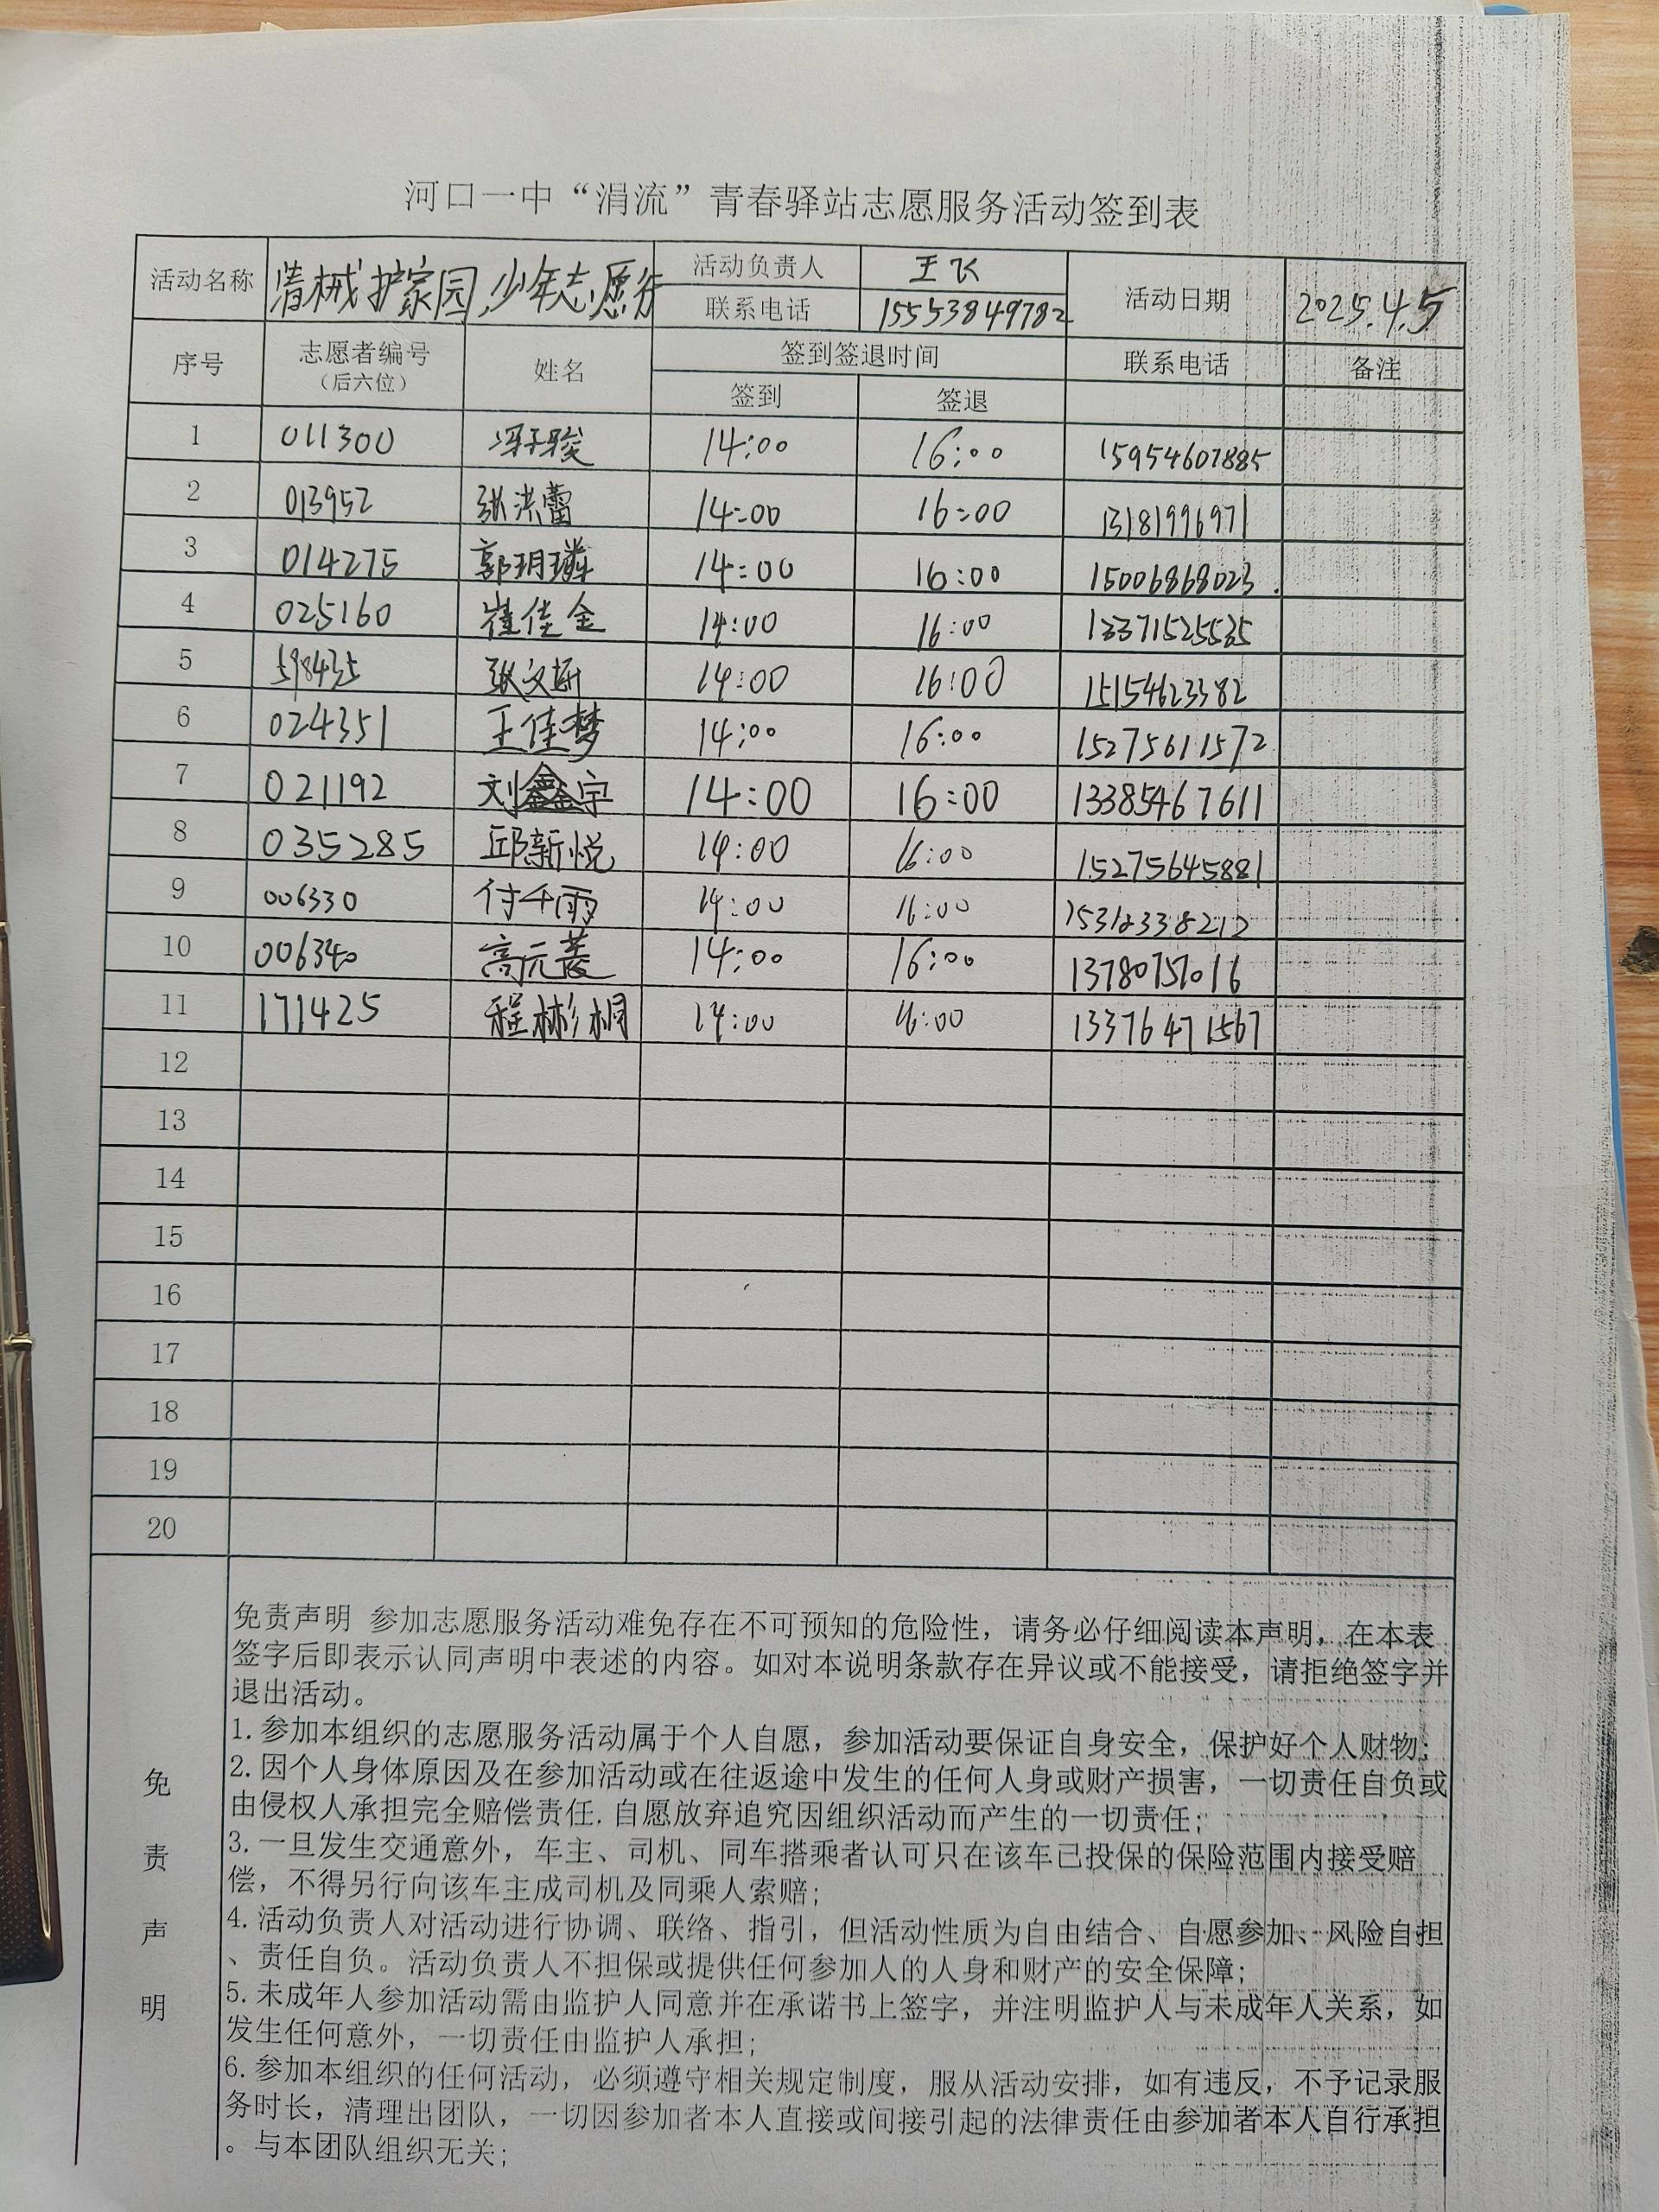 河口一中“涓流”青春驿站志愿服务活动签到表
活动名称 清械护家园,少年志愿行 活动负责人 王飞 活动日期 2025.4.5
联系电话 15553849782
序号 志愿者编号 (后六位) 姓名 签到签退时间 联系电话 备注
签到 签退
1 011300 冯子骏 14:00 16:00 15954607885
2 013952 张洪蕾 14:00 16:00 13181996971
3 014275 郭玥璘 14:00 16:00 15006868023
4 025160 崔佳金 14:00 16:00 13371525535
5 598435 张文 14:00 16:00 15154623382
6 024351 王佳梦 14:00 16:00 15275611572
7 021192 刘鑫宇 14:00 16:00 13385467611
8 035285 邱新悦 14:00 16:00 15275645881
9 006330 付千雨 14:00 16:00
10 006340 高元菱 14:00 16:00 13780757016
11 171425 程彬桐 14:00 16:00 13376471567
12
13
14
15
16
17
18
19
20
免责声明
免责声明 参加志愿服务活动难免存在不可预知的危险性，请务必仔细阅读本声明，在本表
签字后即表示认同声明中表述的内容。如对本说明条款存在异议或不能接受，请拒绝签字并
退出活动。
1.参加本组织的志愿服务活动属于个人自愿，参加活动要保证自身安全，保护好个人财物；
2.因个人身体原因及在参加活动或在往返途中发生的任何人身或财产损害，一切责任自负或
由侵权人承担完全赔偿责任.自愿放弃追究因组织活动而产生的一切责任；
3.一旦发生交通意外，车主、司机、同车搭乘者认可只在该车已投保的保险范围内接受赔
偿，不得另行向该车主成司机及同乘人索赔；
4.活动负责人对活动进行协调、联络、指引，但活动性质为自由结合、自愿参加、风险自担
、责任自负。活动负责人不担保或提供任何参加人的人身和财产的安全保障；
5.未成年人参加活动需由监护人同意并在承诺书上签字，并注明监护人与未成年人关系，如
发生任何意外，一切责任由监护人承担；
6.参加本组织的任何活动，必须遵守相关规定制度，服从活动安排，如有违反，不予记录服
务时长，清理出团队，一切因参加者本人直接或间接引起的法律责任由参加者本人自行承担
。与本团队组织无关；